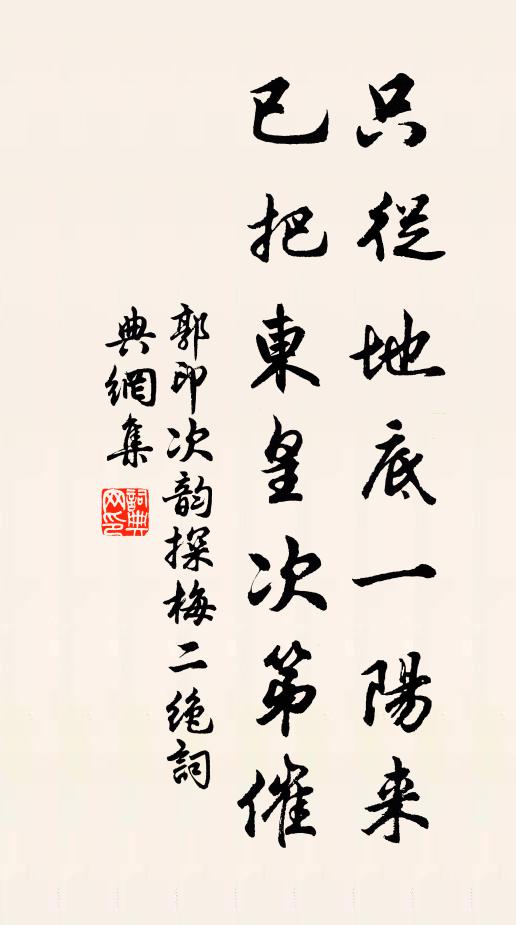 只從地底一陽来
已把東皇次第催
郭印次韵探梅二绝詞
典網集
詞典网印